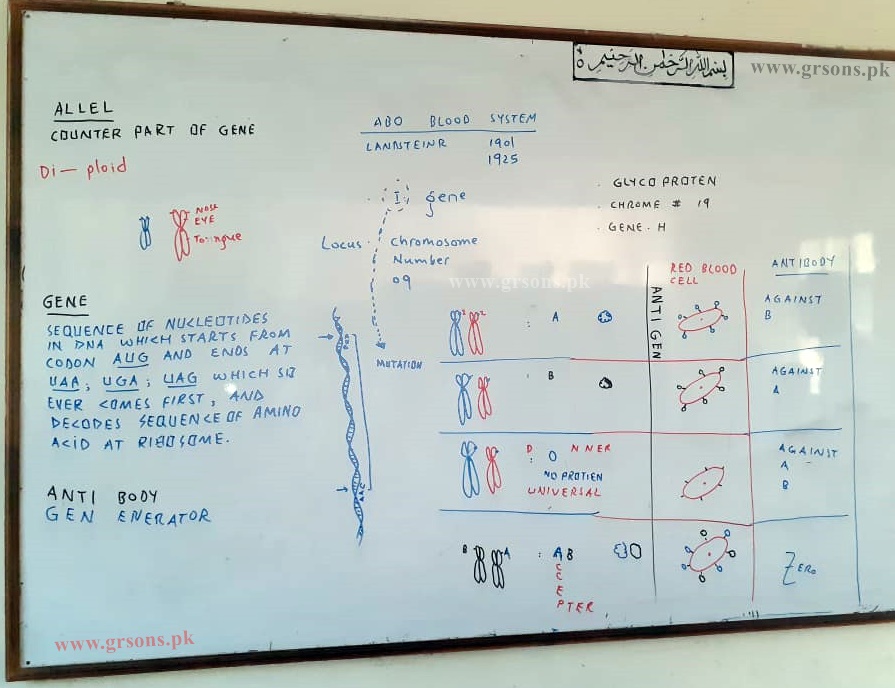 بسم الله الرحمن الرحيم
www.grsons.pk
ALLEL
COUNTER PART OF GENE
Di-ploid
NOSE
EYE
To:ingue
GENE
SEQUENCE OF NUCLEOTIDES
IN DNA WHICH STARTS FROM
CODON AUG AND ENDS AT
UAA; UGA; UAG WHICH SO
EVER COMES FIRST, AND
DECODES SEQUENCE OF AMINO
ACID AT RIBOSOME.
ANTI BODY
GEN ENERATOR
ABO BLOOD SYSTEM
LANDSTEINR 1901
1925
I gene
Locus. Chromosome
Number
09
MUTATION
. GLYCO PROTEN
. CHROME # 19
. GENE-H
www.grsons.pk
ANTIGEN
RED BLOOD
CELL
ANTIBODY
: A
AGAINST
B
: B
AGAINST
A
DONNER
: O
NO PROTIEN
UNIVERSAL
AGAINST
A
B
B A : AB
ACCEPTER
ZERO
www.grsons.pk